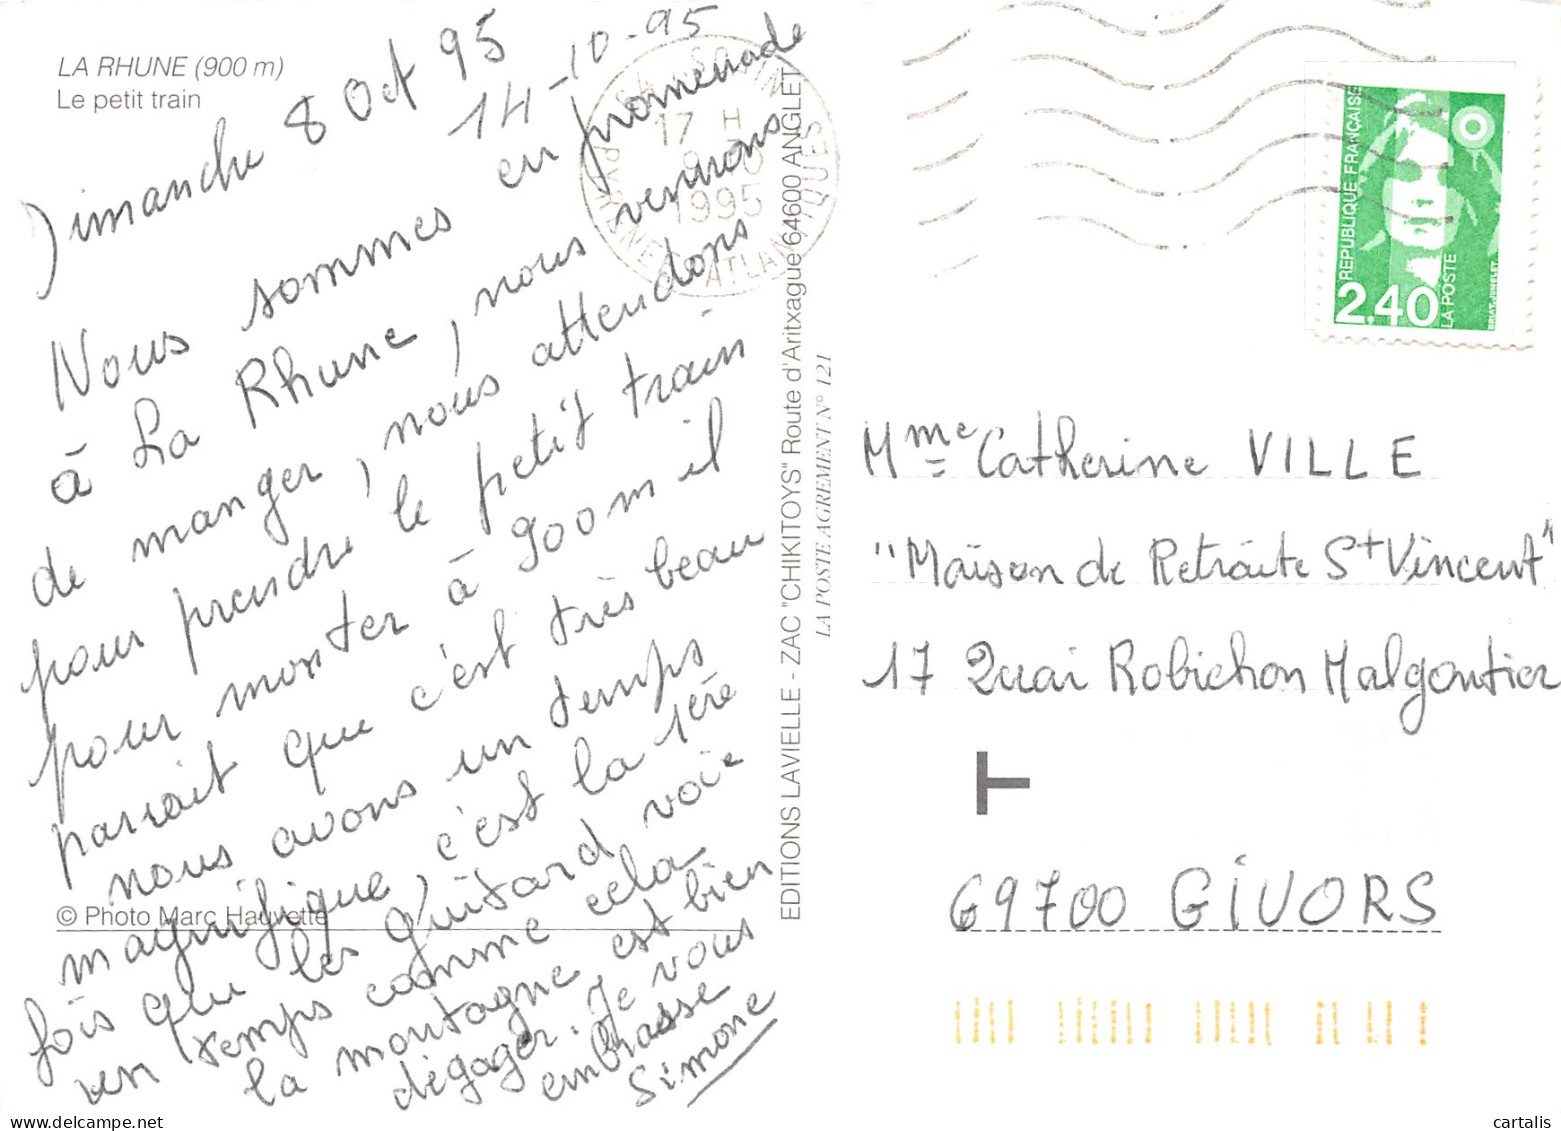 LA RHUNE (900 m)
Le petit train
Dimanche 8 Oct 95
14-10-95
Nous sommes en promenade
à La Rhune, nous venons
de manger, nous attendons
pour prendre le petit train
pour monter à 900m il
parrait que c'est très beau
nous avons un temps
magnifique, c'est la 1ère
fois que les Guitard voie
un temps comme cela
la montagne est bien
dégager. Je vous
embrasse
Simone
© Photo Marc Hauvette
17 H
1995
PYRENEES ATLANTIQUES
EDITIONS LAVIELLE - ZAC "CHIKITOYS" Route d'Aritxague 64600 ANGLET
LA POSTE AGREMENT N° 121
REPUBLIQUE FRANÇAISE
2,40
LA POSTE
BRIAT-JUMELET
Mme Catherine VILLE
"Maison de Retraite St Vincent"
17 Quai Robichon Malgontier
T
69700 GIVORS
cartalis